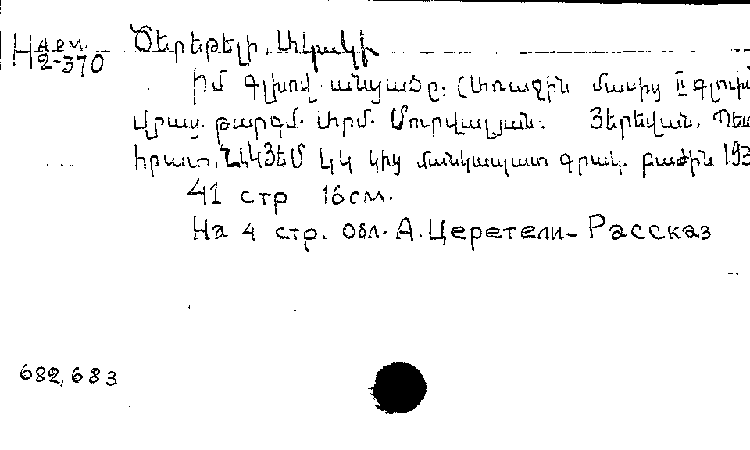 Н Арм. 2-370
Ծերեթելի, Ակակի
Իմ գլխով անցածը. (Առաջին մասից II գլուխ
վրաց. թարգմ. Արմ. Մուրվալյան. Յերեվան, Պետ
հրատ, ՀԼԿՅԵՄ ԿԿ կից մանկապատ գրակ. բաժին 193
41 стр 16 см.
На 4 стр. обл. А. Церетели - Рассказ
682, 683